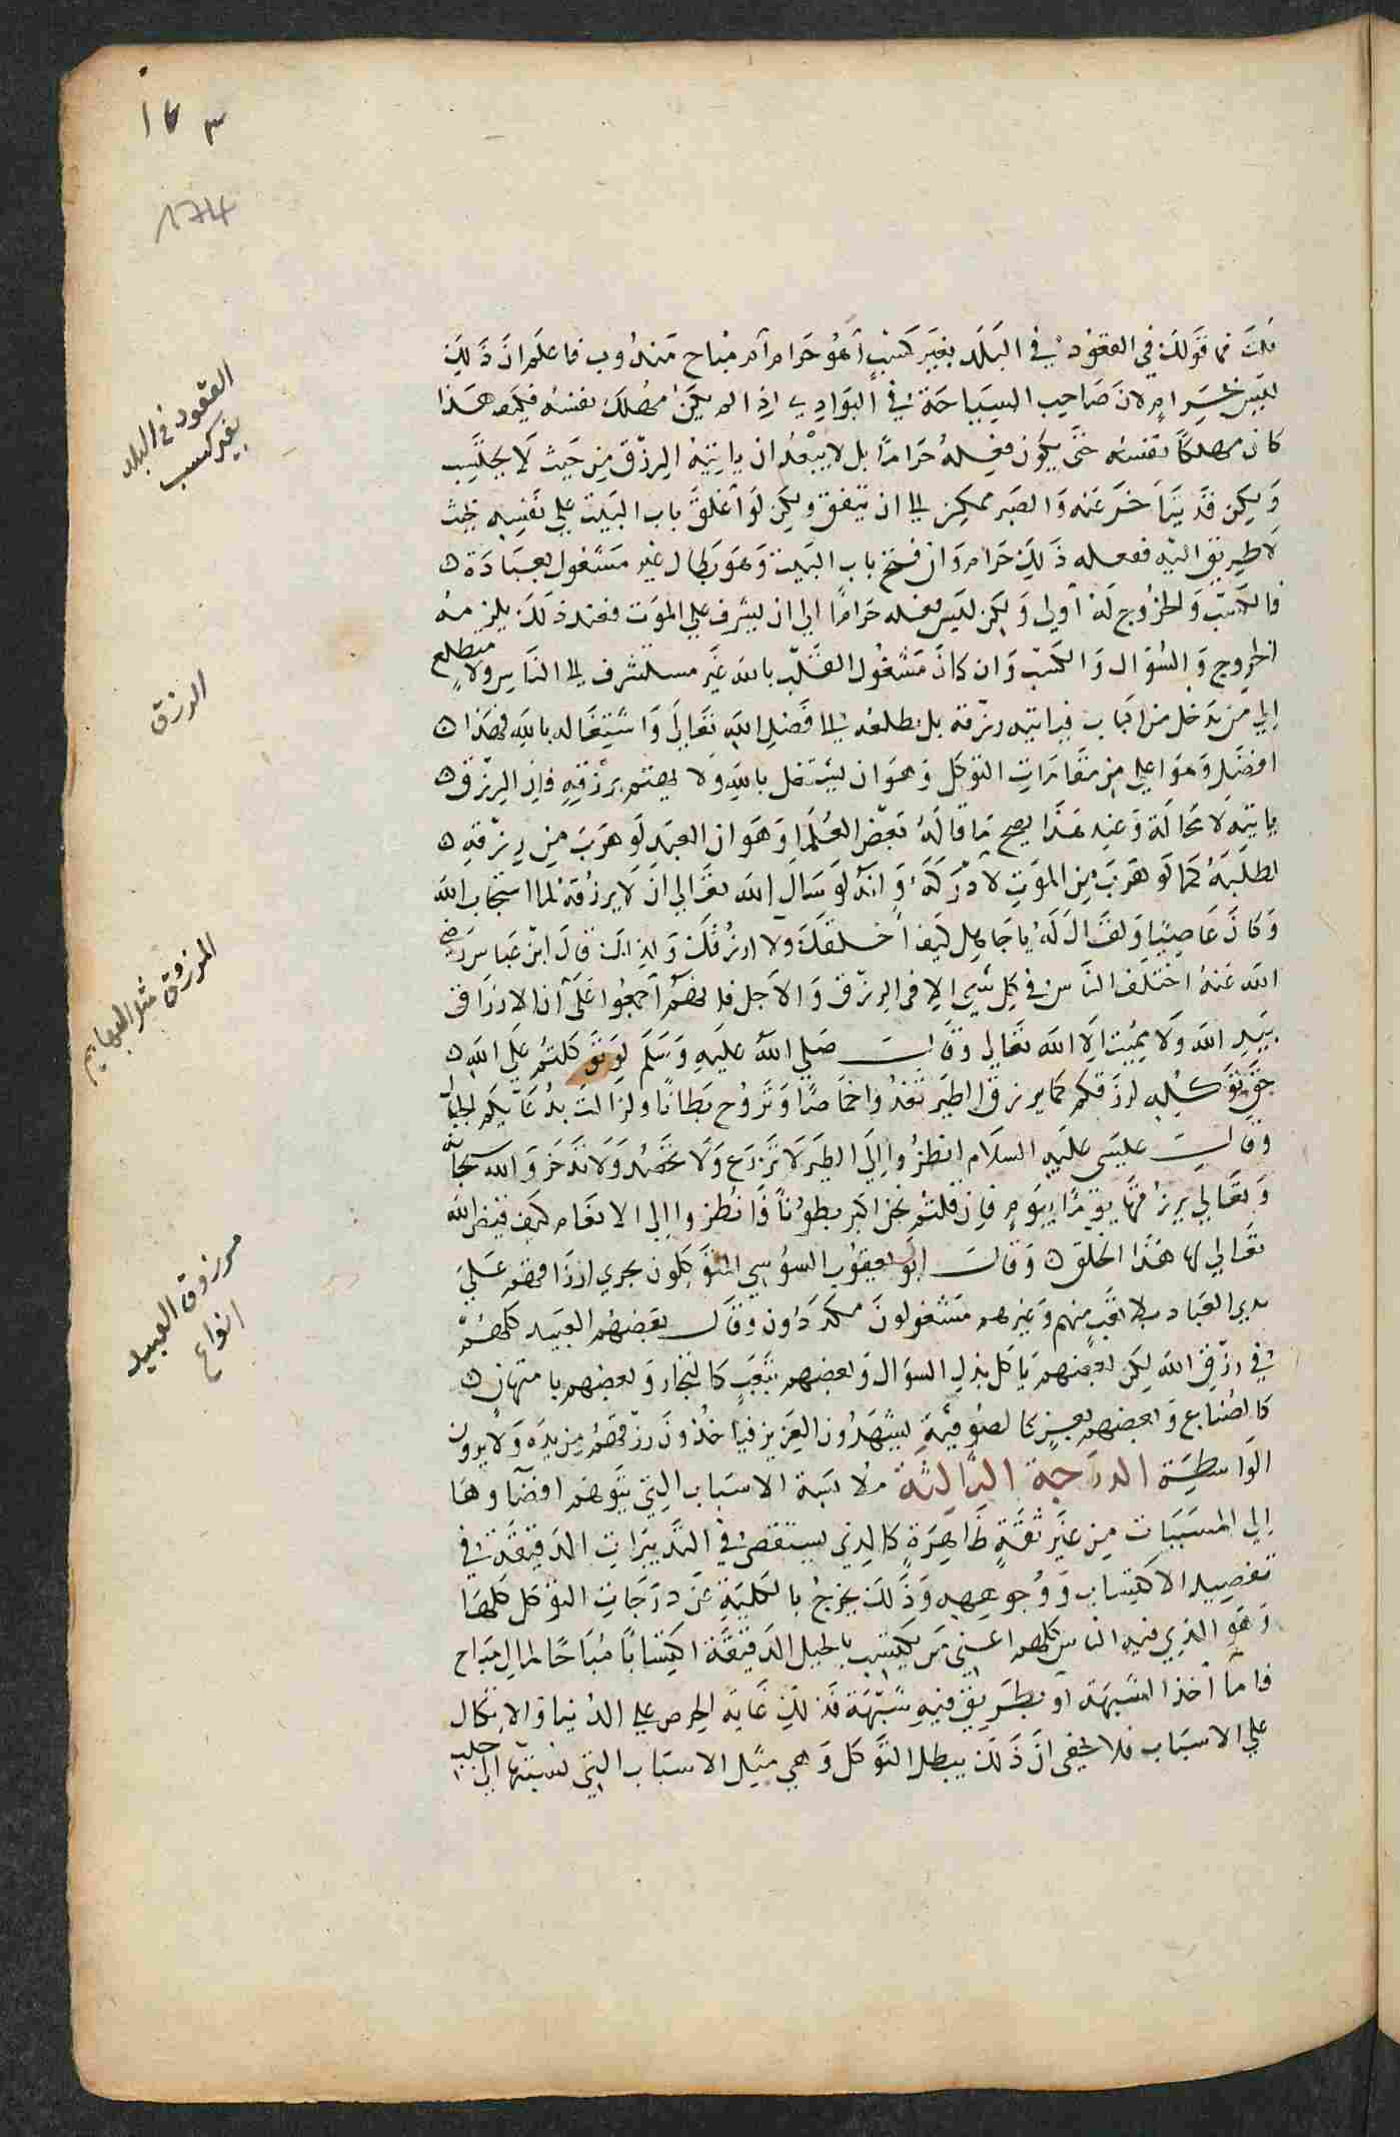 ١٧٣
174
قلت فما قولك في القعود في البلد بغير كسب أهو حرام أم مباح مندوب فاعلم ان ذلك
ليس بحرام لان صاحب السياحة في البوادي اذا لم يكن مهلك نفسه فكيف هذا
كان مهلكا نفسه حتى يكون فعله حراما بل لا يبعد ان ياتيه الرزق من حيث لا يحتسب
ولكن قد يتاخر عنه والصبر ممكن الى ان يتفق ولكن لو اغلق باب البيت على نفسه بحيث
لا طريق اليه ففعله ذلك حرام وان فتح باب البيت وهو بطال غير مشغول بعبادة
فالكسب والخروج له اولى ولكن ليس فعله حراما الى ان يشرف على الموت فعند ذلك يلزمه
الخروج والسؤال والكسب وان كان مشغول القلب بالله غير مستشرف الى الناس ولا متطلع
الى من يدخل من الباب فياتيه رزقه بل تطلعه الى فضل الله تعالى واشتغاله بالله فهذا
افضل وهو اعلى من مقامات التوكل وهو ان يشتغل بالله ولا يهتم برزقه فان الرزق
ياتيه لا محالة وعند هذا يصح ما قاله بعض العلماء وهو ان العبد لو هرب من رزقه
لطلبه كما لو هرب من الموت لادركه وانه لو سال الله تعالى ان لا يرزقه لما استجاب الله
وكان عاصيا ولقال له يا جاهل كيف اخلقك ولا ارزقك ولذلك قال ابن عباس رضي
الله عنه اختلف الناس في كل شي الا في الرزق والاجل فانهم اجمعوا على ان لا رزاق
بيد الله ولا يميت الا الله تعالى وقال صلى الله عليه وسلم لو توكلتم على الله
حق توكله لرزقكم كما يرزق الطير تغدوا خماصا وتروح بطانا ولزالت بدعائكم الجبال
وقال عليسى عليه السلام انظروا الى الطير لا تزرع ولا تحصد ولا تدخر والله سبحانه
وتعالى يرزقها يوما بيوم فان قلتم نحن اكبر بطونا فانظروا الى الانعام كيف قيض الله
تعالى لها هذا الخلق وقال ابو يعقوب السوسي المتوكلون يجري ارزاقهم على
يدى العباد بلا تعب منهم وغيرهم مشغولون مكدودون وقال بعضهم العبيد كلهم
في رزق الله لكن بعضهم ياكل بذل السوال وبعضهم بتعب كالتجار وبعضهم بامتهان
كالصناع وبعضهم بعز كالصوفية يشهدون العزيز فياخذون رزقهم من يده ولا يرون
الواسطة الدرجة الثالثة ملابسة الاسباب التي يتوهم افضاوها
الى المسببات من غير ثقة ظاهرة كالذي يستقصى في التدبيرات الدقيقة في
تفصيله الاكتساب ووجوهه وذلك يخرج بالكلية عن درجات التوكل كلها
وهو الذي فيه الناس كلهم اعني من يكتسب بالحيل الدقيقة اكتسابا مباحا لمال مباح
فاما اخذ الشبهة او بطريق فيه شبهة فذلك غاية الحرص على الدنيا والاتكال
على الاسباب فلا يخفى ان ذلك يبطل التوكل وهي مثل الاسباب التي نسبتها الى جلب
القعود في البلد
بغير كسب
الرزق
المرزوق مثل البهايم
مرزوق العبيد
انواع